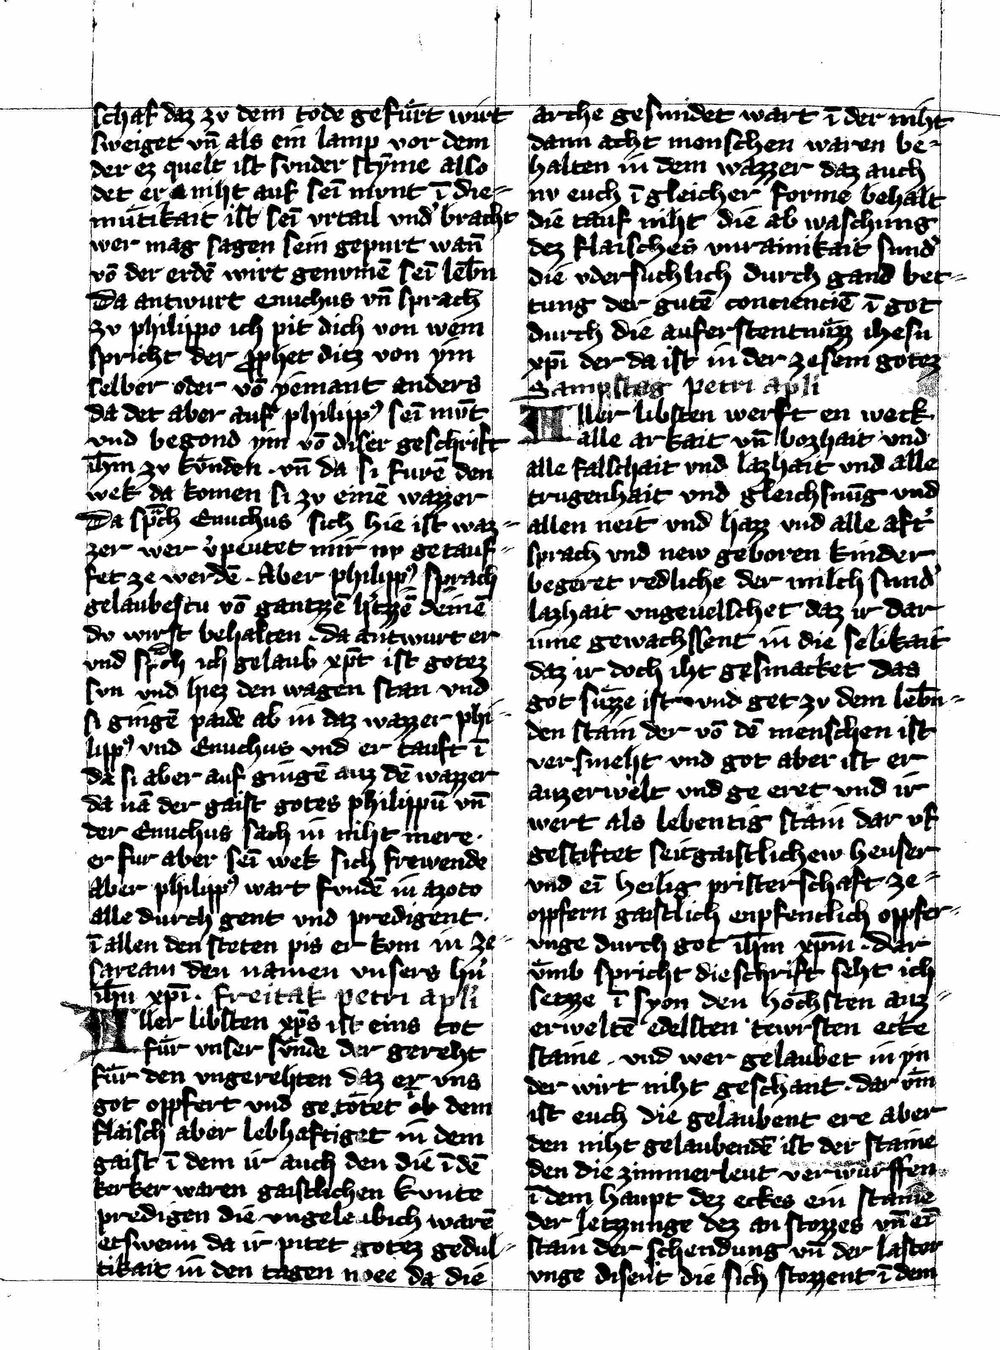 schaf daz zv dem tode gefuͤrt wirt
sweiget vn̄ als ein lamp vor dem
der ez quelt ist sunder stȳme also
det er niht auf sei᷑ mvnt ī die⸗
muͤtikait ist sei᷑ vrtail vnd bracht
wer mag sagen sein gepurt wan̄
vō der erdē wirt genvmē sei᷑ lebn̄
Da antwurt enuchus vn̄ sprach
zv philippo ich pit dich von wem
spricht der prophet ditz von ym
selber oder vō yemant anders
da det aber auf philippꝰ sei᷑ mv̄t
vnd begond ym vō diser geschrift
ih̄m zv kuͤnden · vn̄ da si furē den
wek da komen si zv einē wazzer
Da sp̄ch Enuchus sich hie ist waz⸗
zer wer v̓peutet mir nv getauf⸗
fet ze werdē · Aber philippꝰ sprach
gelaubestu vō gantzzē h̓tzzē deinē
dv wirst behalten · da antwurt er
vnd sp̄ch ich gelaub xp̄t ist gotez
svn vnd hiez den wagen stan vnd
si gingē paide ab in daz wazzer phi⸗
lippꝰ vnd Enuchus vnd er tauft ī
da si aber auf gingē auz dē wazzer
da nā der gaist gotes philippū vn̄
der Enuchus sach in niht mere ·
er fur aber sei᷑ wek sich frewende
Aber philippꝰ wart fundē in azoto
alle durch gent vnd predigent ·
ī allen den steten pis er kom in ze⸗
saream den namen vnsers hn̓
ih̄u xp̄i · Freitak petri apli
Aller libsten xp̄s ist eins tot
fuͤr vnser suͤnde der gereht
fuͤr den vngerehten daz er vns
got oppfert vnd getoͤtet ob dem
flaisch aber lebhaftiget in dem
gaist ī dem ir auch den die ī dē
kerker waren gaistlichen kvnte
predigen die vngelaubich warē
etswenn da ir pitet gotez gedul⸗
tikait in den tagen noee da die
arche gesundet wart ī der niht
dann acht menschen waren be⸗
halten in dem wazzer daz auch
nv euch ī gleicher forme behalt
die tauf niht die ab waschung
dez flaisches vnrainikait sund̓
die vdersuchlich durch gand bet⸗
tung der gutē conciencie ī got
durch die auferstentnuͤzz ihesu
xp̄i der da ist in der zesem gotez
Sampstag petri apli
Aller libsten werft en wek
alle arkait vn̄ bozhait vnd
alle falschait vnd lazhait vnd alle
trugenhait vnd gleichsnūg vnd
allen neit vnd hazz vnd alle aft̓
sprach vnd new geboren kinder
begeret redliche der milch sund̓
lazhait vngeuelschet daz ir dar
inne gewachssent in die selikait
daz ir doch iht gesmacket das
got suͤzze ist vnd get zv dem lebn̄⸗
den stain der vō dē menschen ist
versmeht vnd got aber ist er
auzerwelt vnd ge eret vnd ir
wert als lebentig stain dar vf
gestiftet seit gaistlichew heuser
vnd ei᷑ heilig pristerschaft ze⸗
oppfern gaistlich enpfenclich oppfer⸗
vnge durch got ih̄m xp̄m · Dar
vͤmb spricht die schrift seht ich
setzze ī syon den hoͤchsten auz⸗
erweltē edelsten tewrsten ecke
staine · vnd wer gelaubet in yn
der wirt niht geschant · dar vͤm
ist euch die gelaubent ere aber
den niht gelaubendē ist der staine
den die zimmerleut verwurffen
ī dem haupt dez eckes ein staine
der letzzunge dez an stozzes vn̄ ei᷑
stain der schendung vn̄ der laster
vnge disen̄t die sich stozzent ī dem